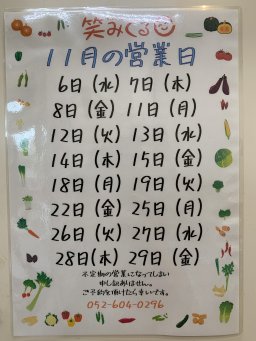 笑みくる
11月の営業日
6日(水) 7日(木)
8日(金) 11日(月)
12日(火) 13日(水)
14日(木) 15日(金)
18日(月) 19日(火)
22日(金) 25日(月)
26日(火) 27日(水)
28日(木) 29日(金)
不定期の営業になってしまい
申し訳ありません。
ご予約を頂けたら幸いです。
052-604-0296